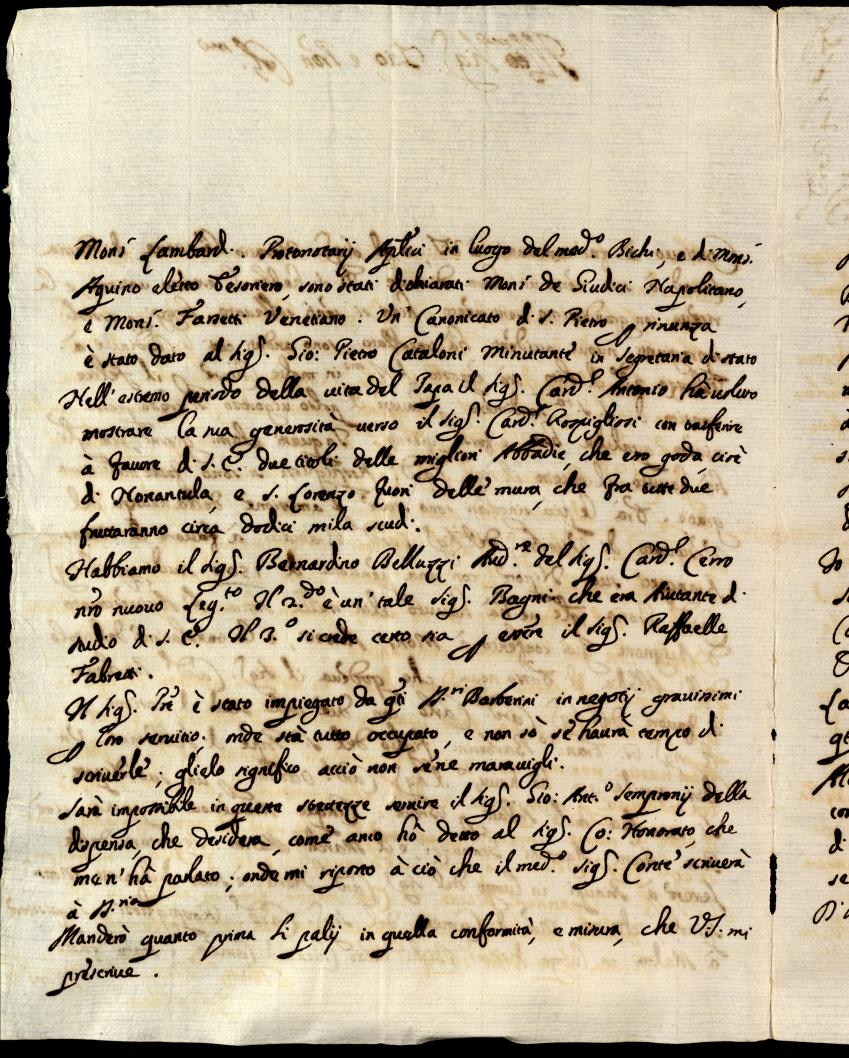 Mons.r Lambard. Protonotarij Aplici in luogo del med.o Bichi, e di Mons.
Aquino eletto Tesoriero, sono stati dichiarati Mons.r de Giudici Napolitano,
e Mons.r Farsetti Venetiano. Un' Canonicato di S. Pietro p rinunza
è stato dato al Sig.r Gio: Pietro Cataloni Minutante in Segretaria di stato
Nell' estremo periodo della vita del Papa il Sig.r Card.l Antonio hà voluto
mostrare la sua generosità verso il Sig.r Card.l Rospigliosi con trasferire
à favore di S. E. due titoli delle migliori Abbadie, che ero goda cioè
di Nonantula, e S. Lorenzo fuori delle mura, che fra tutte due
fruttaranno circa dodici mila scudi.
Habbiamo il Sig.r Bernardino Belluzzi Aud.re del Sig.r Card.l Cerro
nro nuovo Leg.to Il 2.do è un' tale Sig.r Bagni che era Aiutante di
studio di S. E. Il 3.o si crede certo sia p essere il Sig.r Raffaelle
Fabretti.
Il Sig.r Pre è stato impiegato da q̃ti S.ri Barberini in negotij gravissimi
p loro servitio; onde stà tutto occupato, e non sò se haurà tempo di
scriverle; glielo significo acciò non se ne maravigli.
Sarà impossibile in queste strettezze servire il Sig.r Gio: Ant.o Sempronij della
dispensa, che desidera, come anco hò detto al Sig.r Co: Honorato, che
me n' hà parlato; onde mi riporto à ciò che il med.o Sig.r Conte scriverà
à S.ria
Manderò quanto prima li palij in quella conformità, e misura, che V.S. mi
prescrive.